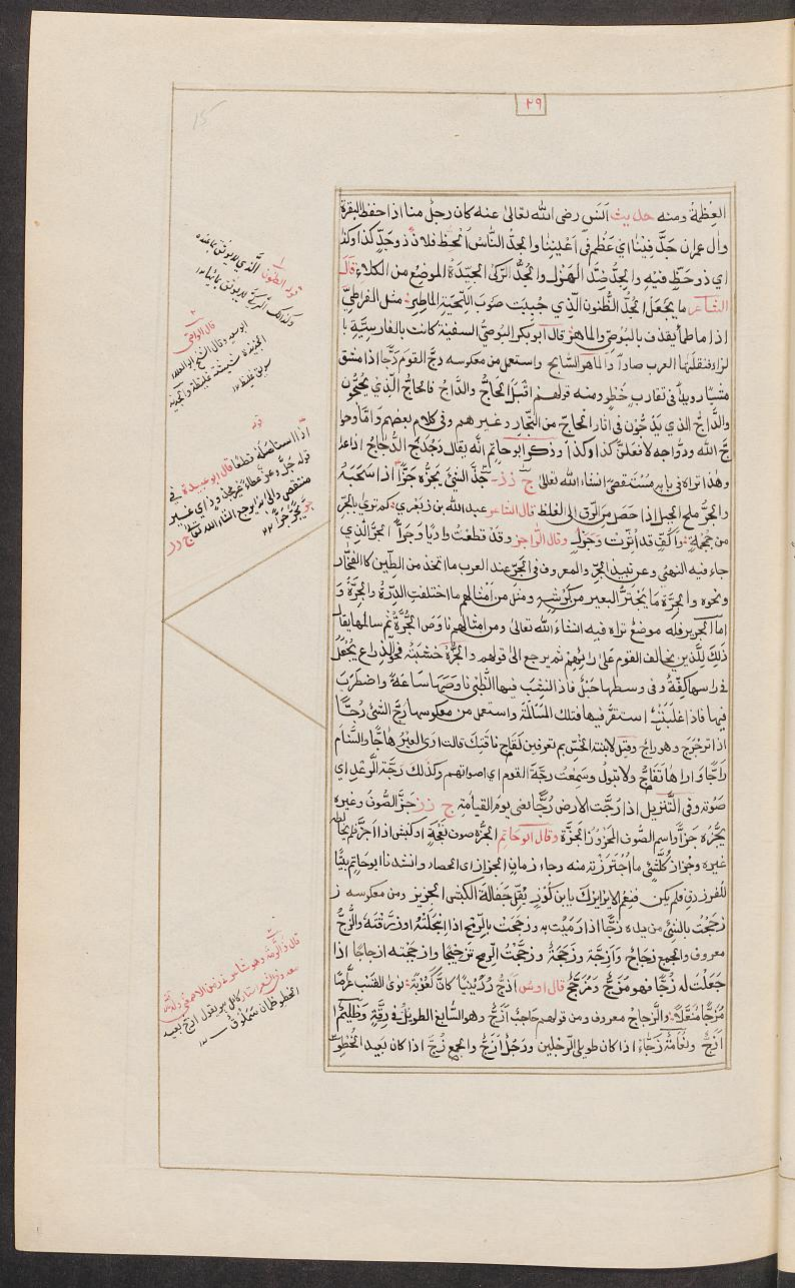 ٢٩
15
العظمة ومنه حديث انس رضى الله تعالى عنه كان رجل منا اذا حفظ البقرة
وال عمران جَدَّ فِيْنَا اي عَظُم في اَعْيُنِنا والجَدُّ للنّاس الحَظّ فلان ذو جَدٍّ كذا وكذا
اي ذو حَظٍّ فيه والجِدُّ ضِدُّ الهَزْل والجُدُّ الرَكىّ الجيّدة الموضع من الكلاء قال
الشاعر ما يُجْعَلُ الجُدُّ الظَّنونُ الَّذِي جُنِّبَ صَوْبَ اللَّجِبِ الماطِرِ مثل الفراتيّ
اذا ما طما يقذف بالبُوصِيِّ والماهِرِ قال ابو بكر البُوصِيُّ السفينة كانت بالفارسيّة
فنقلَتها العرب صادًا والماهر السّابح واستعمل من معكوسه دجَّ القوم دَجًّا اذا مشوا
مشيًا رويدًا في تقارب خَطْوٍ ومنه قولهم اقبل الحاجّ والدّاجّ فالحاجّ الّذين يحجّون
والدّاجّ الذين يَدِجّون في اثار الحاجّ من التّجار وغيرهم وفي كلام بعضهم واما وحواجّ
الله ودواجّه لافعلنّ كذا وكذا وذكر ابو حاتم انّه يقال دَجْدَجَ الدَّجاج اذا عدا
وهذا تراه في بابه مُسْتَقصىً انشاء الله تعالى ج ر ر جَرَّ الشئَ يَجُرُّه جَرًّا اذا سَحَبَهُ
والجَرُّ سفح الجبل اذا حَصَل من الرّق الى الغلظ قال الشاعر عبد الله بن زبعرى كم ترى بالجَرِّ
من جُمْجُمَةٍ واَكُفٍّ قد اُتِرَّت وجِزَلْ وقال الرّاجز وقد قطعتُ واديًا وجَرًّا الجَرُّ الّذي
جاء فيه النهيُ وعن نبيذ الجَرِّ والمعروف في الجَرّ عند العرب ما اتخذ من الطّين كالفخّار
ونحوه والجِرّة مَا يَجْتَرُّ البعير من كَرِشِه ومثل من اَمْثالهم ما اختلفت الدِّرَّةُ والجِرَّةُ وَ
امّا الجرير فله موضع تراه فيه انشاء الله تعالى ومن امثالهم ناوَصَ الجُرَّةَ ثم سالمها يقال
ذلك للّذي يخالف القوم على رائيهم ثم يرجع الى قولهم والجُرَّةُ خَشَبَةٌ نحو الذراع يُجْعَلُ
في راسها كِفَّةٌ وفي وسطها حَبْلٌ فاذا انشِبَ فيها الظَّبْى ناوَصَها سَاعَةً واضطربَ
فيها فاذا غلبتهُ استقرّ فيها فتلك المُسَالَمة واستعمل من معكوسها رَجَّ الشئ رَجًّا
اذا ترجرج وهو راجّ وقيل لابنة الخُسّ بم تعرفين لَقاح ناقتكِ قالت ارى العينَ هاجًّا والسَّنام
راجًّا واراها تَفاجُّ ولا تبولُ وسَمِعْتُ رجَّةَ القوم اي اصواتهم وكذلك رجّة الرَّعد اي
صَوته وفي التنزيل اذا رُجَّتِ الارض رَجًّا يعني يوم القيامة ج ز ز جَزَّ الصُّوفَ وغيره
يَجُزُّه جَزًّا واسم الصّوف المَجزُوز الجِزَّة وقال ابو حاتم الجِزّة صوف نَعْجَةٍ او كبش اذا جُزَّ فلم يخالطه
غيره وجُزاز كُلّ شئ ما اجْتَزَزْتَه منه وجاء زمانُ الجِزاز اي الحصاد وانشدنا ابو حاتم بيتًا
للفرزدق فلم يكن فنعم الايرايرك يابن كُوزٍ يُقِلّ جُفالَةَ الكبش الجزيز ومن معكوسه ز
زجَجْتُ بالشئ من يدى زجًّا اذا رَمَيْتَ به وزججت بالرّمح اذا انجلتهُ او زرَّقته والزُّجّ
معروف والجمع زِجاج واَزِجَّة وزِجَجَةٌ وزجَّجتُ الرمح تَزجِيْجًا وازججته ازجاجًا اذا
جَعَلْتَ له زُجًّا فهو مُزَجّ ومُزَجَّج قال اوس اَزَجَّ رُدَيْنيًا كأنَّ كُعُوْبَهُ نوى القَسْبِ عَرَّاصًا
مُزَجًّا مُنَصَّلَا والزُّجاج معروف ومن قولهم حاجب اَزَجّ وهو السّابغ الطويل في رِقَّةٍ وظَلِيمٌ
اَزَجّ ونَعَامَةٌ زَجَّاء اذا كان طويل الرِّجلين ورَجُلٌ اَزَجّ والجمع زُجّ اذا كان بعيد الخُطوة
١
قوله الظنون الَّذي لا يوثق بمائه
وكذلك الرَّجل لا يوثق بما
٢
قال الواثقي
ابو سعيد وقال الشيخ ابو العلاء
قوله
اذا استاصله قطعًا قال ابو عبيدة في
قوله جلّ وعزّ عطاءً غير مجذوذ اي غير
منتقص
جرّ يجُرُّ جرًّا ١٢
قال ذو الرّمّة وهو شاعر
الخطو ظمان سَهْوَقُ ١٢